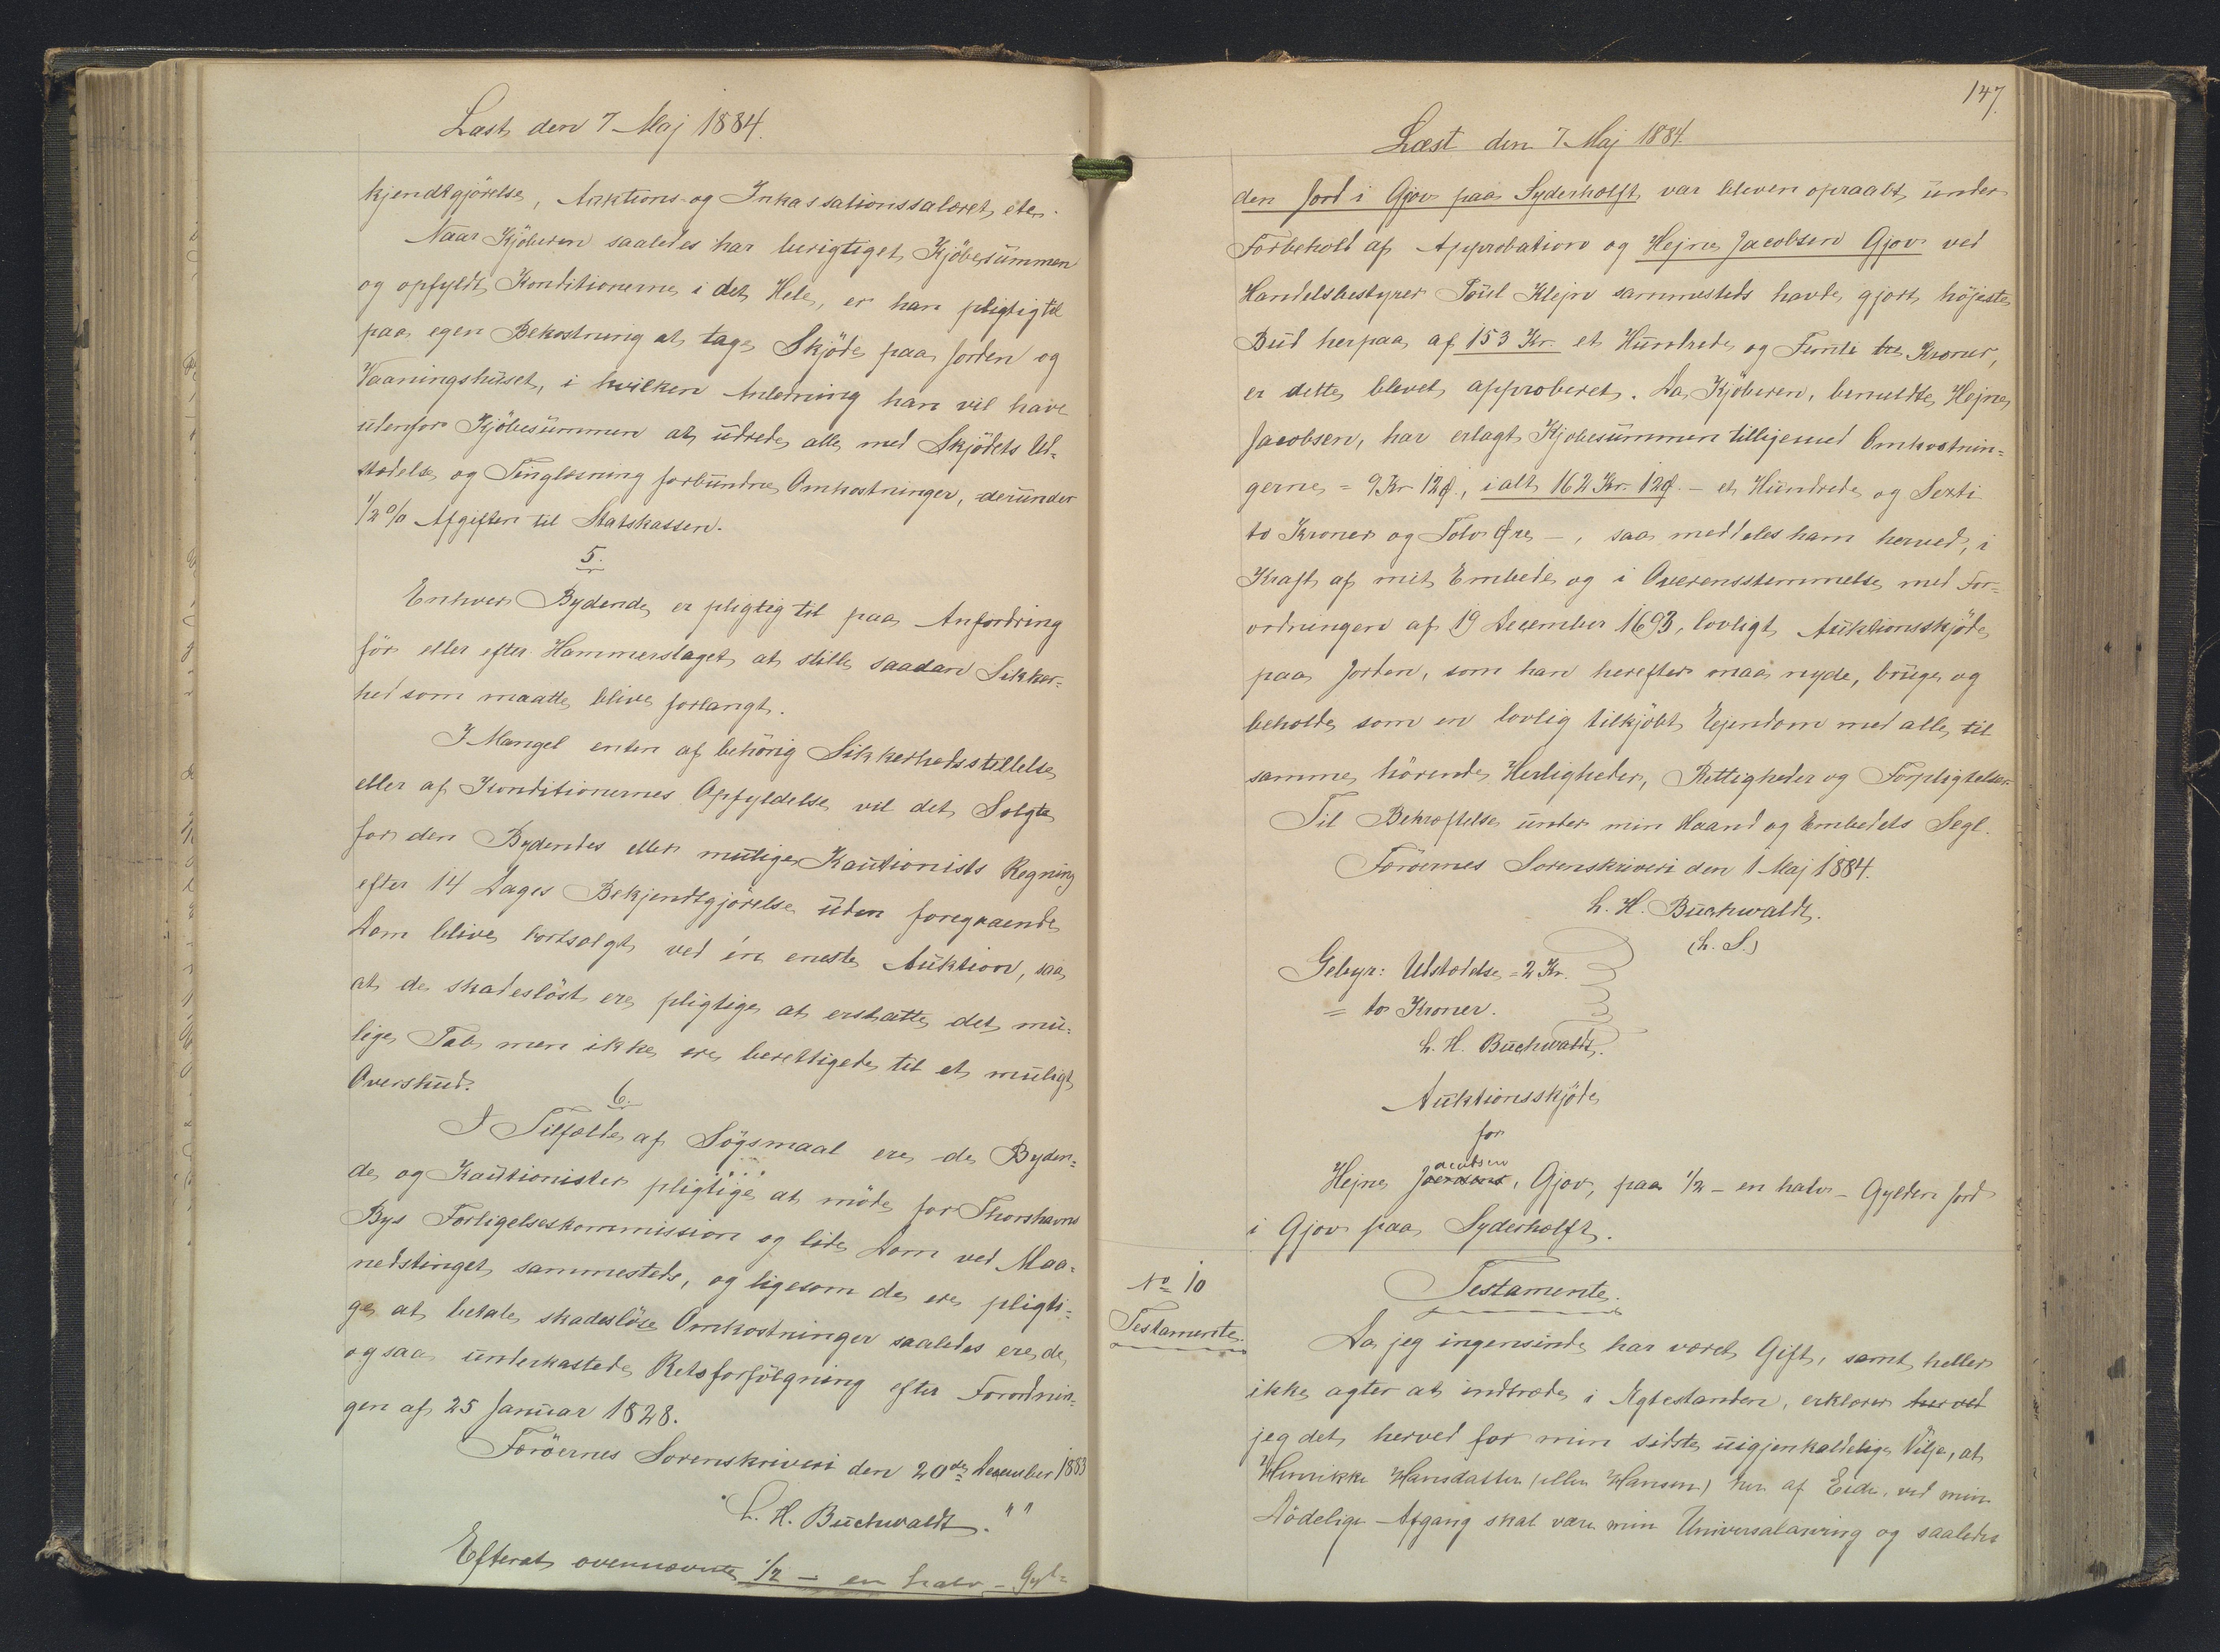 Læst den 7 Maj 1884.
kjendtgjörelse, Auktions- og Inkassationssalæret, etc.
Naar Kjöberen saaledes har berigtiget Kjöbesummen
og opfyldt Konditionerne i det Hele, er han pligtig til
paa egen Bekostning at tage Skjöde paa Jorden og
Vaaningshuset, i hvilken Anledning han vil have
udenfor Kjöbesummen at udrede alle med Skjödets Ud-
stædelse og Tinglæsning forbundne Omkostninger, derunder
1/2 % Afgiften til Statskassen.
5.
Enhver Bydende er pligtig til paa Anfordring
för eller efter Hammerslaget at stille saadan Sikker-
hed som maatte blive forlangt.
I Mangel enten af behörig Sikkerhedsstillelse
eller af Konditionernes Opfyldelse vil det Solgte
for den Bydendes eller mulige Kautionists Regning
efter 14 Dages Bekjendtgjörelse uden foregaaende
Dom blive bortsolgt ved én eneste Auktion, saa
at de skadeslöst ere pligtige at erstatte det mu-
lige Tab men ikke ere berettigede til et muligt
Overskud.
6.
I Tilfælde af Sögsmaal ere de Byden-
de og Kautionister pligtige at möde for Thorshavns
Bys Forligelseskommission og lide Dom ved Maa-
nedstinget sammesteds, og ligesom de ere pligti-
ge at betale skadeslöse Omkostninger saaledes ere de
ogsaa underkastede Retsforfölgning efter Forordnin-
gen af 25 Januar 1828.
Færöernes Sorenskriveri den 20de December 1883
L. H. Buchwaldt. " "
Efterat ovennævnte 1/2 - en halv - Gyl-
147.
Læst den 7 Maj 1884.
den Jord i Gjov paa Syderhalft, var bleven opraabt under
Forbehold af Approbation og Hejne Jacobsen Gjov ved
Handelsbestyrer Poul Klejn sammesteds havde gjort höjeste
Bud herpaa af 153 Kr. et Hundrede og Femti tre Kroner,
er dette blevet approberet. Da Kjöberen, bemeldte Hejne
Jacobsen, har erlagt Kjøbesummen tilligemed Omkostnin-
gerne = 9 Kr 12 Ø., ialt 162 Kr. 12 Ø. - et Hundrede og Sexti
to Kroner og Tolv Øre -, saa meddeles ham herved, i
Kraft af mit Embede og i Overensstemmelse med For-
ordningen af 19 December 1693, lovligt Auktionsskjöde
paa Jorden, som han herefter maa nyde, bruge og
beholde som en lovlig tilkjöbt Ejendom med alle til
samme hörende Herligheder, Rettigheder og Forpligtelser.
Til Bekræftelse under min Haand og Embedets Segl.
Færöernes Sorenskriveri den 1 Maj 1884.
L. H. Buchwaldt.
(L. S.)
Gebyr: Udstædelse = 2 Kr.
= to Kroner.
L. H. Buchwaldt.
Auktionsskjöde
for
Hejne Jacobsen, Gjov, paa 1/2 - en halv - Gylden Jord
i Gjov paa Syderhalft.
No 10
Testamente.
Testamente.
Da jeg ingensinde har været Gift, samt heller
ikke agter at indtræde i Ægtestanden, erklærer herved
jeg det herved for min sidste uigjenkaldelige Vilje, at
Henrikke Hansdatter (eller Hansen) her af Eide, ved min
Dödelige Afgang skal være min Universalarving og saaledes